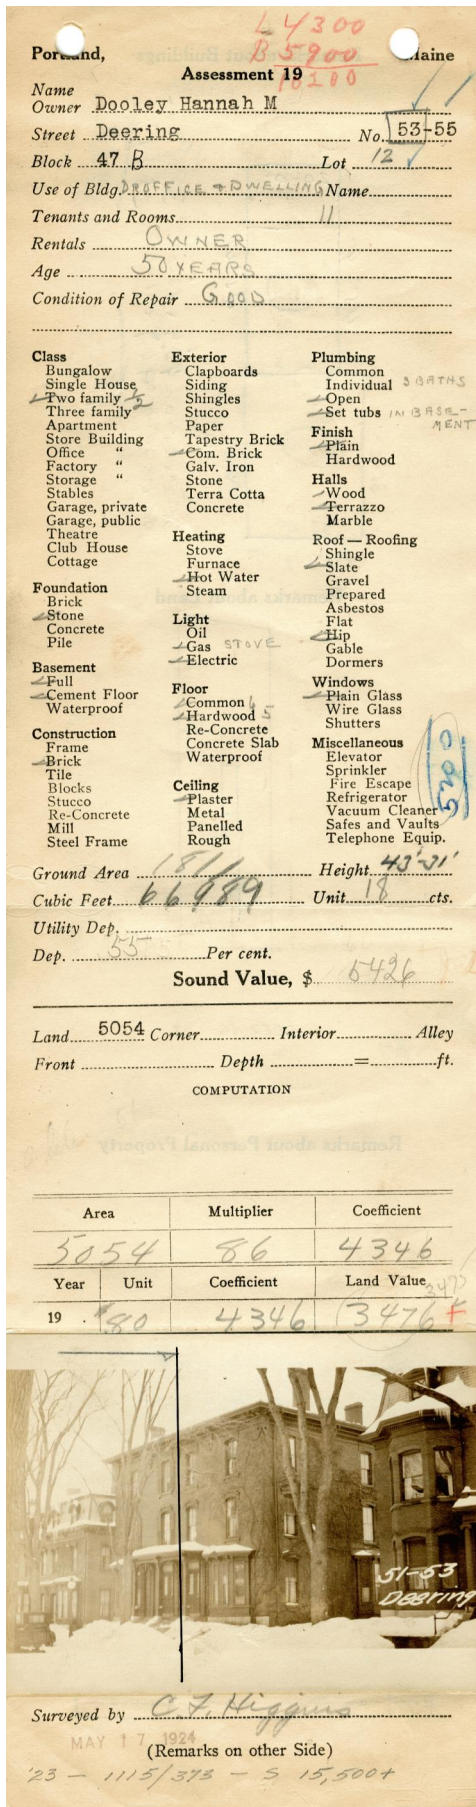 L 4300
B 5900
10200
Portland, Maine
Assessment 19
Name
Owner Dooley Hannah M
Street Deering No. 53-55
Block 47 B Lot 12
Use of Bldg. DR OFFICE + DWELLING Name
Tenants and Rooms 11
Rentals OWNER
Age 50 YEARS
Condition of Repair GOOD
Class
Bungalow
Single House
Two family 1/2
Three family
Apartment
Store Building
Office "
Factory "
Storage "
Stables
Garage, private
Garage, public
Theatre
Club House
Cottage
Foundation
Brick
Stone
Concrete
Pile
Basement
Full
Cement Floor
Waterproof
Construction
Frame
Brick
Tile
Blocks
Stucco
Re-Concrete
Mill
Steel Frame
Exterior
Clapboards
Siding
Shingles
Stucco
Paper
Tapestry Brick
Com. Brick
Galv. Iron
Stone
Terra Cotta
Concrete
Heating
Stove
Furnace
Hot Water
Steam
Light
Oil
Gas STOVE
Electric
Floor
Common 6
Hardwood 5
Re-Concrete
Concrete Slab
Waterproof
Ceiling
Plaster
Metal
Panelled
Rough
Plumbing
Common
Individual 3 BATHS
Open
Set tubs IN BASE-
MENT
Finish
Plain
Hardwood
Halls
Wood
Terrazzo
Marble
Roof — Roofing
Shingle
Slate
Gravel
Prepared
Asbestos
Flat
Hip
Gable
Dormers
Windows
Plain Glass
Wire Glass
Shutters
Miscellaneous
Elevator
Sprinkler
Fire Escape
Refrigerator
Vacuum Cleaner
Safes and Vaults
Telephone Equip.
5200
Ground Area 1811 Height 43'-31'
Cubic Feet 66989 Unit 18 cts.
Utility Dep.
Dep. 55 Per cent.
Sound Value, $ 5426
Land 5054 Corner Interior Alley
Front Depth = ft.
COMPUTATION
Area Multiplier Coefficient
5054 86 4346
Year Unit Coefficient Land Value
3475
19 . $80 4346 3476 +
51-53
Deering
Surveyed by C. F. Higgins
MAY 17 1924
(Remarks on other Side)
'23 - 1115/373 - S 15,500+